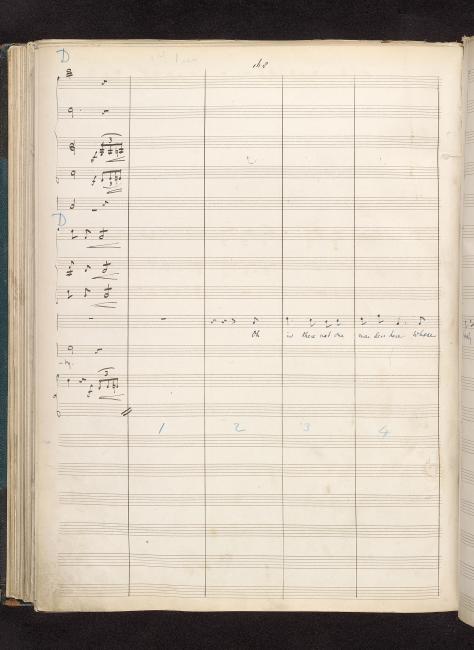 D
3
f
f
3
D
Oh is there not one maiden here Whose
3
f
1 2 3 4